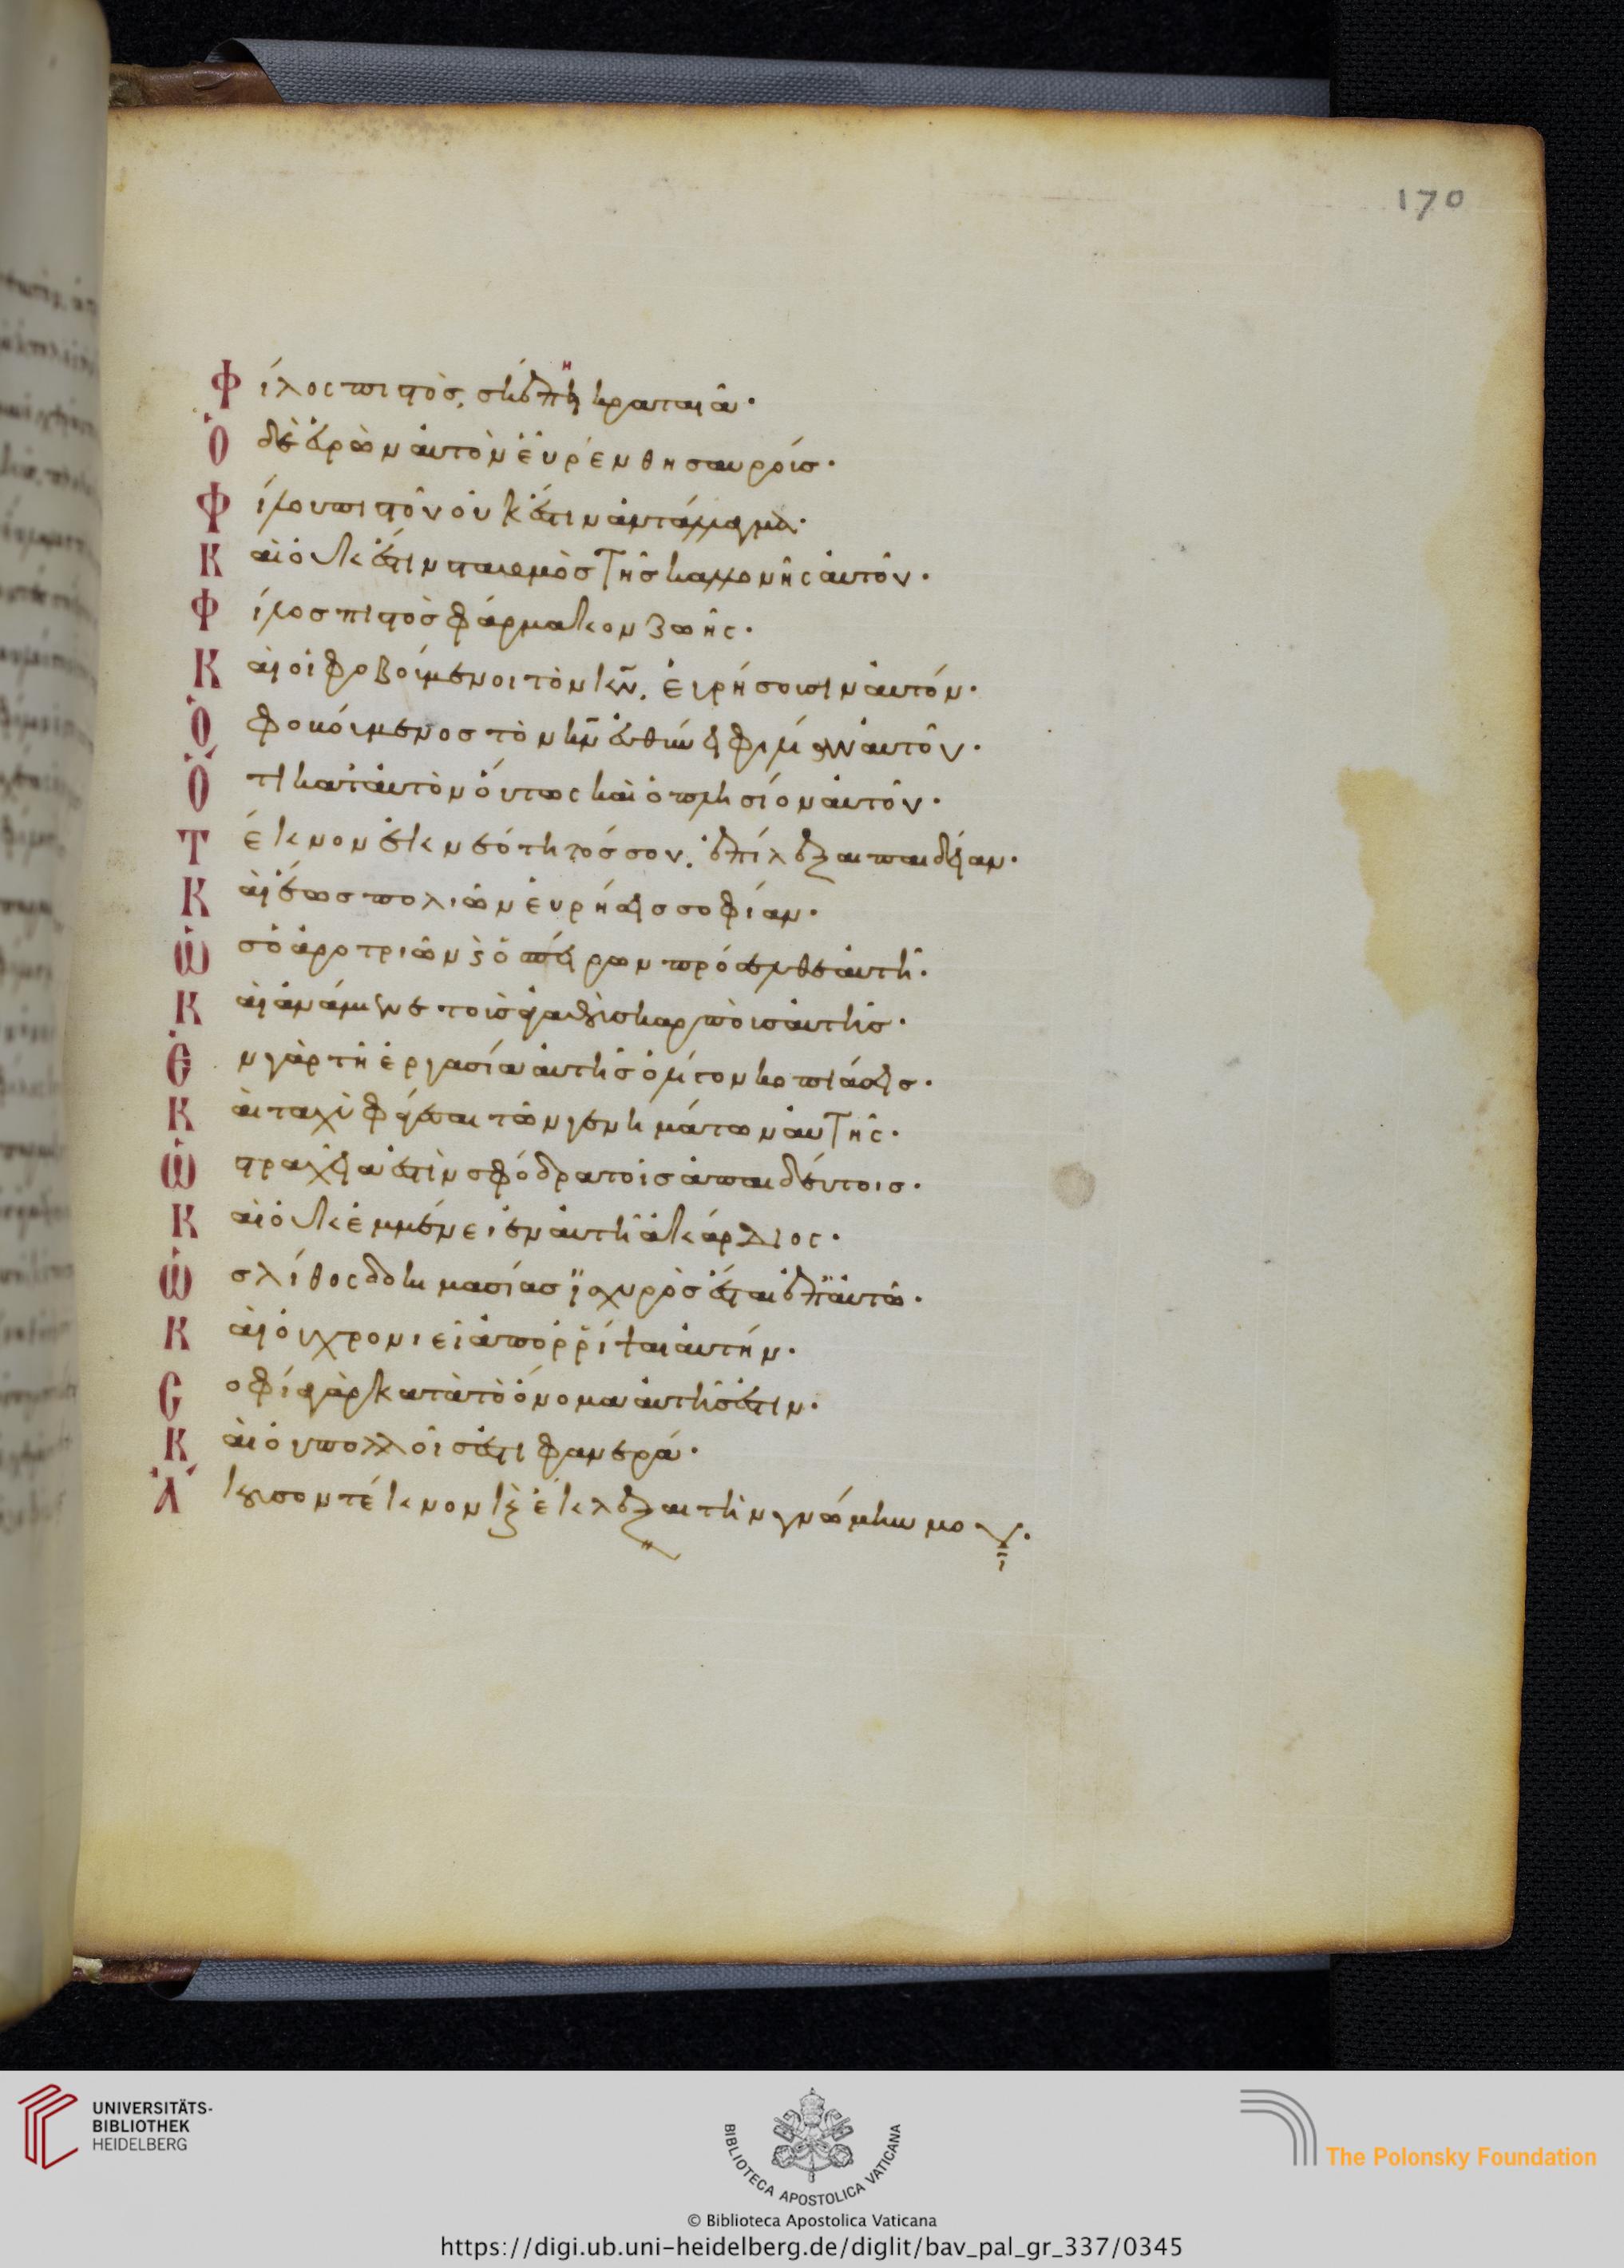 170
Φίλος πιστὸσ, σκέπη κραταιὰ·
Ὁ δὲ ἑυρὼν ἀυτὸν ἑῦρεν θησαυρόισ·
Φίλου πιστοῦ οὐκ ἔστιν ἀντάλλαγμα·
Καὶ οὐκ ἔστιν σταθμὸσ τῆσ καλλονῆς ἀυτοῦ·
Φίλοσ πιστὸσ φάρμακον ζωῆς·
Καὶ οἱ φοβούμενοι τὸν κν̄, ἑυρήσουσιν ἀυτόν·
Ὁ φοβούμενοσ τὸν κν̄ ἐυθύνει φιλίαν ἀυτοῦ·
Ὅτι κατ' ἀυτὸν ὄντως καὶ ὁ πλησίον ἀυτοῦ·
Τέκνον ἐκ νεότητόσ σου, ἐπίλεξαι παιδείαν·
Καὶ ἕωσ πολιῶν ἑυρήσεισ σοφίαν·
Ὡσ ὁ ἀροτριῶν καὶ ὁ σπείρων πρόσελθε ἀυτῇ·
Καὶ ἀνάμενε τοῖσ ἀγαθοῖσ καρποῖσ ἀυτῆσ·
Ἐν γὰρ τῇ ἐργασίᾳ ἀυτῆσ ὀλίγον κοπιάσεισ·
Καὶ ταχὺ φάγεσαι τῶν γενημάτων ἀυτῆς·
Ὡσ τραχεῖα ἐστὶν σφόδρα τοῖσ ἀπαιδεύτοισ·
Καὶ οὐκ ἐμμενεῖ ἐν ἀυτῇ ἀκάρδιος·
Ὡσ λίθος δοκιμασίασ ϊσχυρὸσ ἔσται ἐπ' ἀυτῷ·
Καὶ οὐ χρονιεῖ ἀπορρίψαι ἀυτήν·
Σοφία γὰρ κατὰ τὸ ὄνομα ἀυτῆσ ἐστιν·
Καὶ οὐ πολλοῖσ ἐστι φανερά·
Ἄκουσον τέκνον καὶ ἔκλεξαι τὴν γνώμην μου·
UNIVERSITÄTS-
BIBLIOTHEK
HEIDELBERG
BIBLIOTECA APOSTOLICA VATICANA
The Polonsky Foundation
© Biblioteca Apostolica Vaticana
https://digi.ub.uni-heidelberg.de/diglit/bav_pal_gr_337/0345